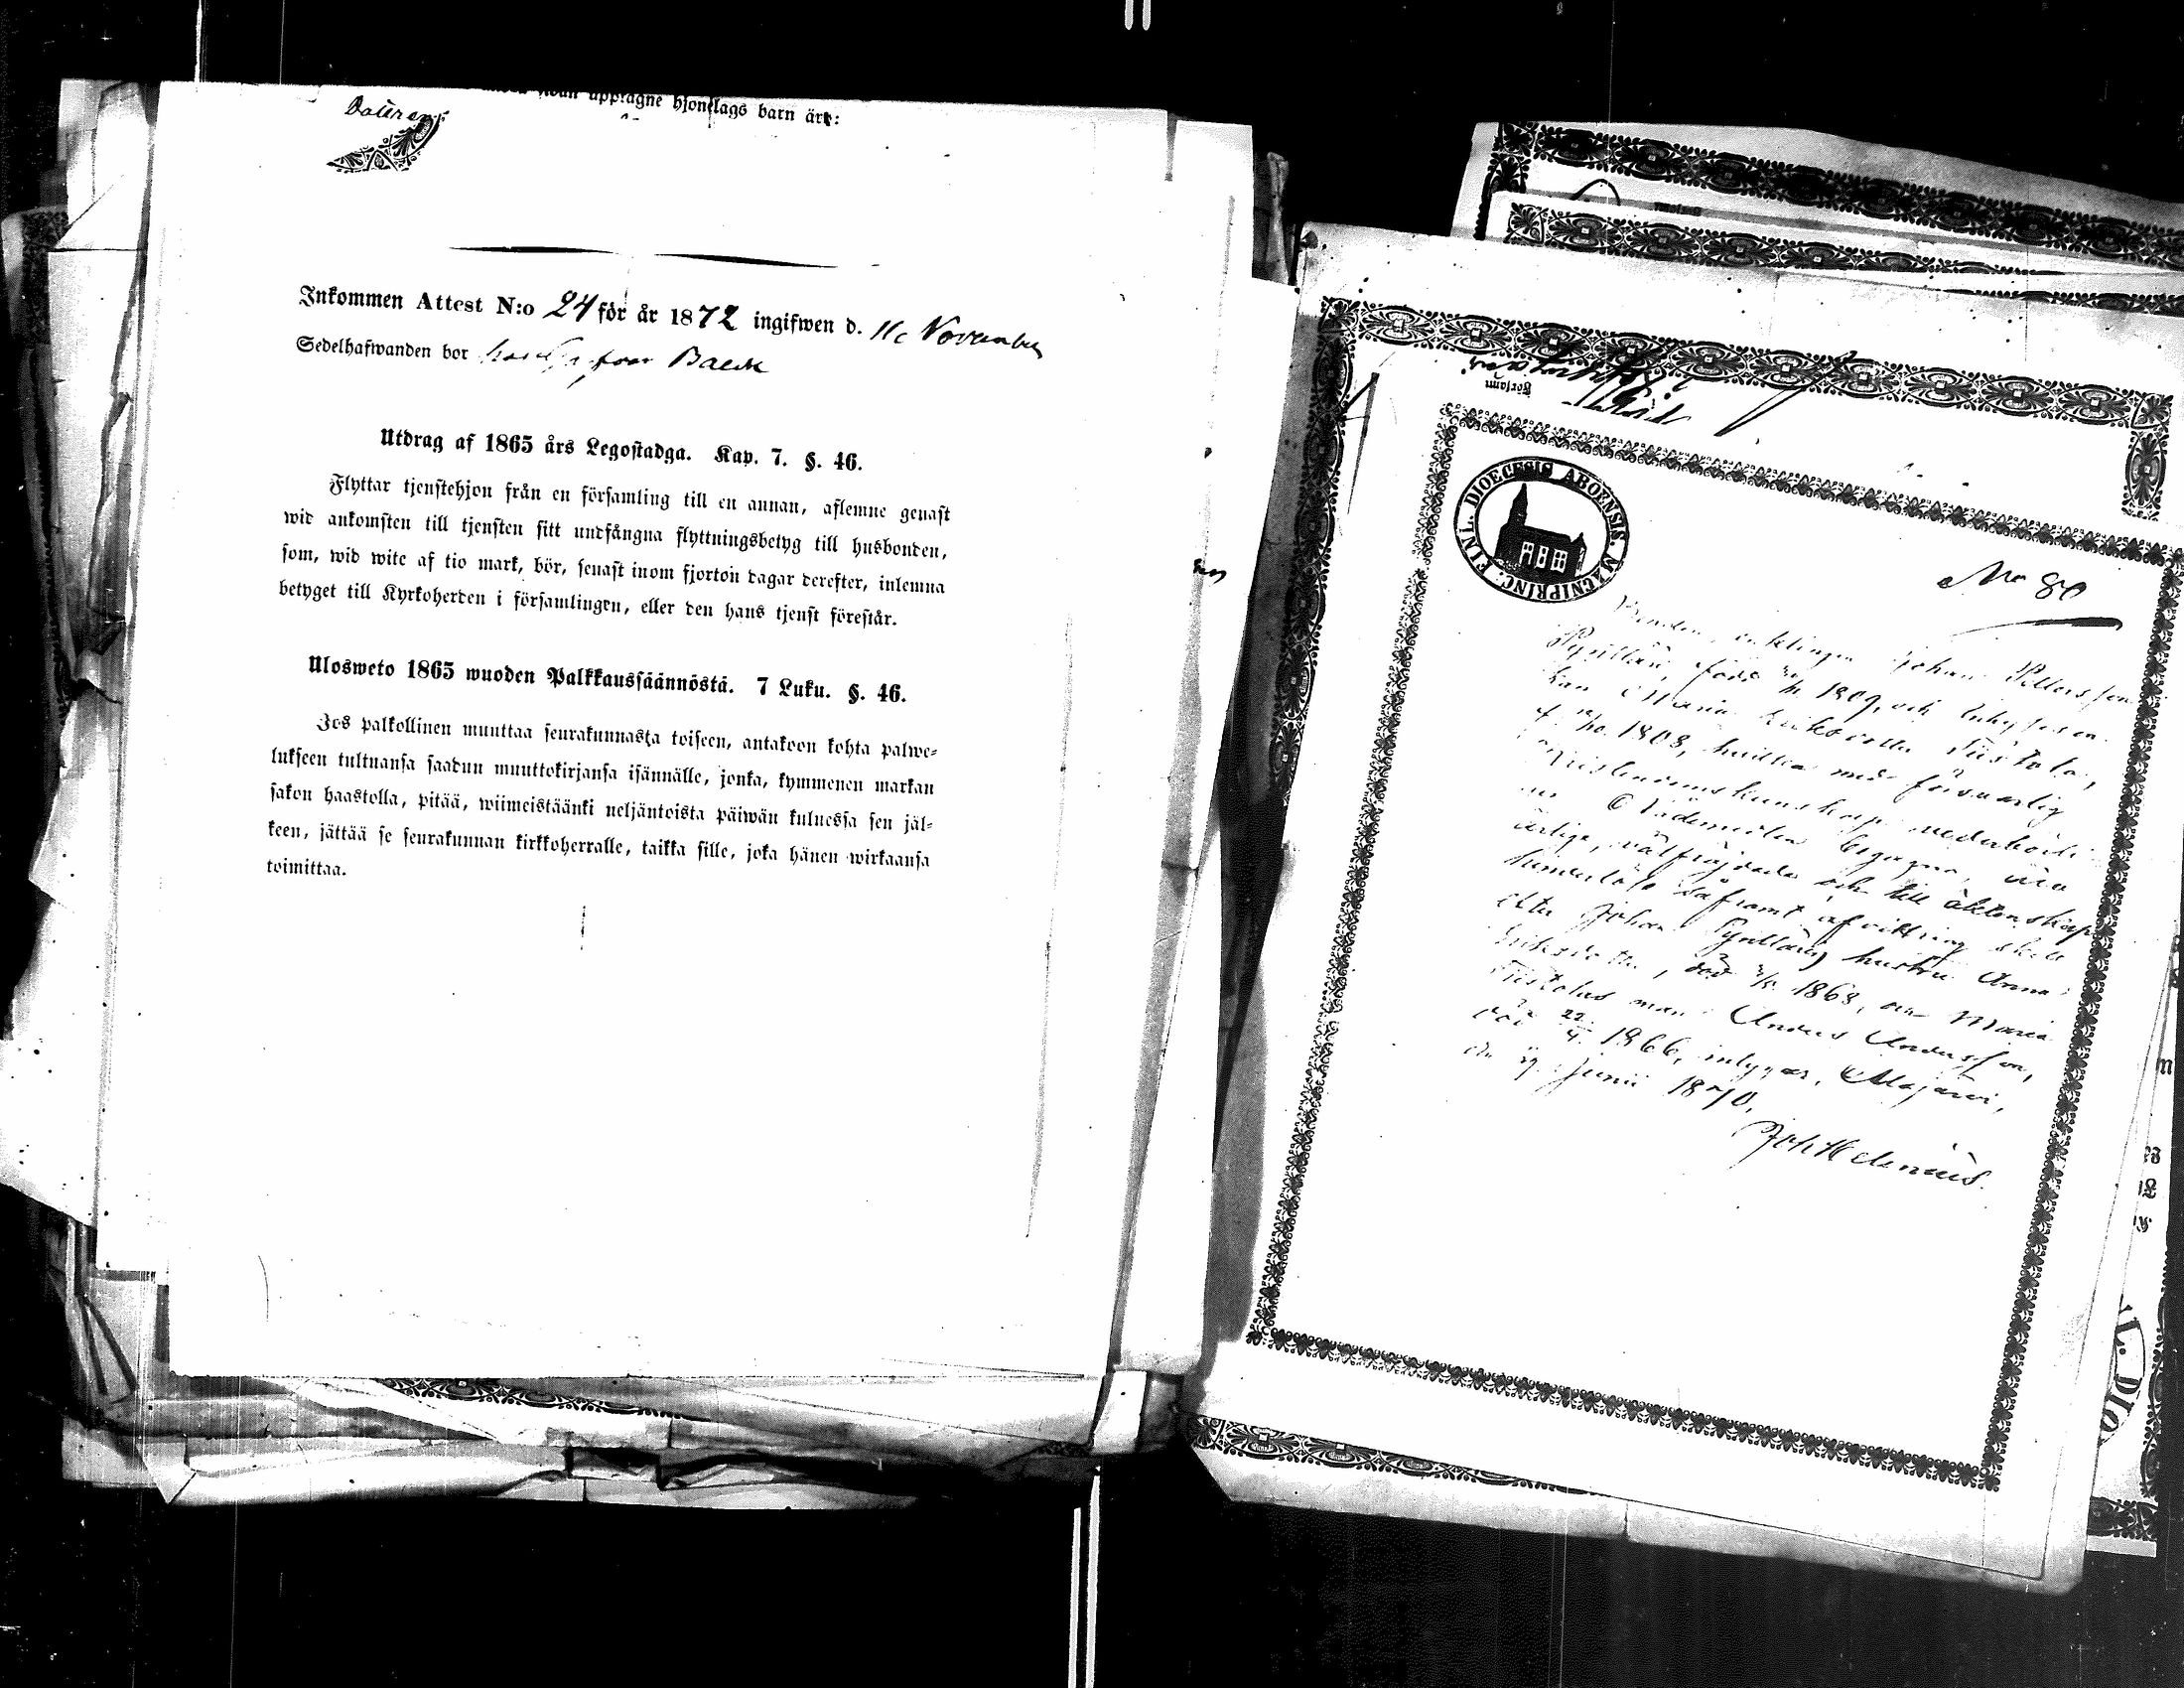 uppfagne hjonelags barn äro:
Inkommen Attest N:o 24 för år 1872 ingifwen d. 11 November
Sedelhafwanden bor hos
Utdrag af 1865 års Legostadga. Kap. 7. §. 46.
Flyttar tjenstehjon från en församling till en annan, aflemne genast
wid ankomsten till tjensten sitt undfångna flyttningsbetyg till husbonden,
som, wid wite af tio mark, bör, senast inom fjorton dagar derefter, inlemna
betyget till Kyrkoherden i församlingen, eller den hans tjenst förestår.
Ulosweto 1865 wuoden Palkkaussäännöstä. 7 Luku. §. 46.
Jos palkollinen muuttaa seurakunnasta toiseen, antakoon kohta palwe-
lukseen tultuansa saadun muuttokirjansa isännälle, jonka, kymmenen markan
sakon haastolla, pitää, wiimeistäänki neljäntoista päiwän kuluessa sen jäl-
keen, jättää se seurakunnan kirkkoherralle, taikka sille, joka hänen wirkaansa
toimittaa.
FINL. DIOECESIS ABOENSIS. MAGNIPRINC.
No 80
Bonden, enklingen Johan
född 1809, och
Maria Eriksdotter Tiistola,
f. 1808, hvilka med försvarlig
christendomskunskap
Nådemedlen begagna, äro
ärlige, välfrejdade och till äktenskap
hinderlöse såframt afvittring skett
efter Johan hustru Anna
Eriksdotter, död 1868, och Maria
Tiistolas man Anders Andersson,
död 22/4 1866, intygar, Alajärvi,
den Junii 1870.
Joh Helenius.